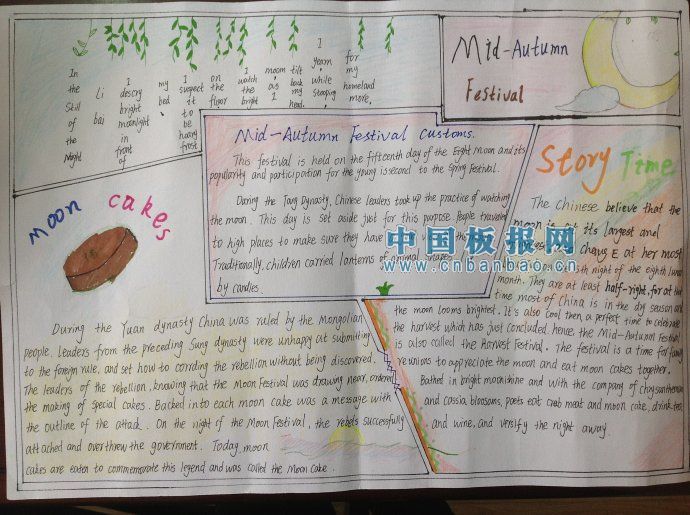 Mid-Autumn
Festival
In the Still of the Night
Li bai
I descry bright moonlight in front of
my bed
I suspect it to be hoary frost
on the floor
I watch the bright
moon as I
tilt back my head.
I yearn while stooping
for my homeland more.
Mid-Autumn Festival Customs.
This festival is held on the fifteenth day of the Eight Moon and its
popularity and participation for the young is second to the Spring Festival.
During the Tang Dynasty, Chinese leaders took up the practice of watching
the moon. This day is set aside just for this purpose. People traveled
to high places to make sure they have
Traditionally, children carried lanterns of animal shapes
by candles.
Moon cakes
During the Yuan dynasty China was ruled by the Mongolian
people. Leaders from the preceding Sung dynasty were unhappy at submiting
to the foreign rule, and set how to corrding the rebellion without being discovered.
The leaders of the rebellion, knowing that the Moon Festival was drawing near, ordered
the making of special cakes. Backed into each moon cake was a message with
the outline of the attack. On the night of the Moon Festival, the rebels successfully
attached and overthrew the government. Today, moon
cakes are eaten to commemorate this legend and was called the Moon Cake.
Story Time
The Chinese believe that the
moon is at its largest and
Chang E at her most
night of the eighth lunar
month. They are at least half-right, for at that
time most of China is in the dry season and
the moon looms brightest. It's also cool then, a perfect time to celebrate
the harvest which has just concluded, hence the Mid-Autumn Festival
is also called the Harvest Festival. The festival is a time for family
reunions to appreciate the moon and eat moon cakes together.
Bathed in bright moonshine and with the company of chrysanthemum
and cassia blossoms, poets eat crab meat and moon cake, drink tea
and wine, and versify the night away.
中国板报网
www.cnbanbao.cn